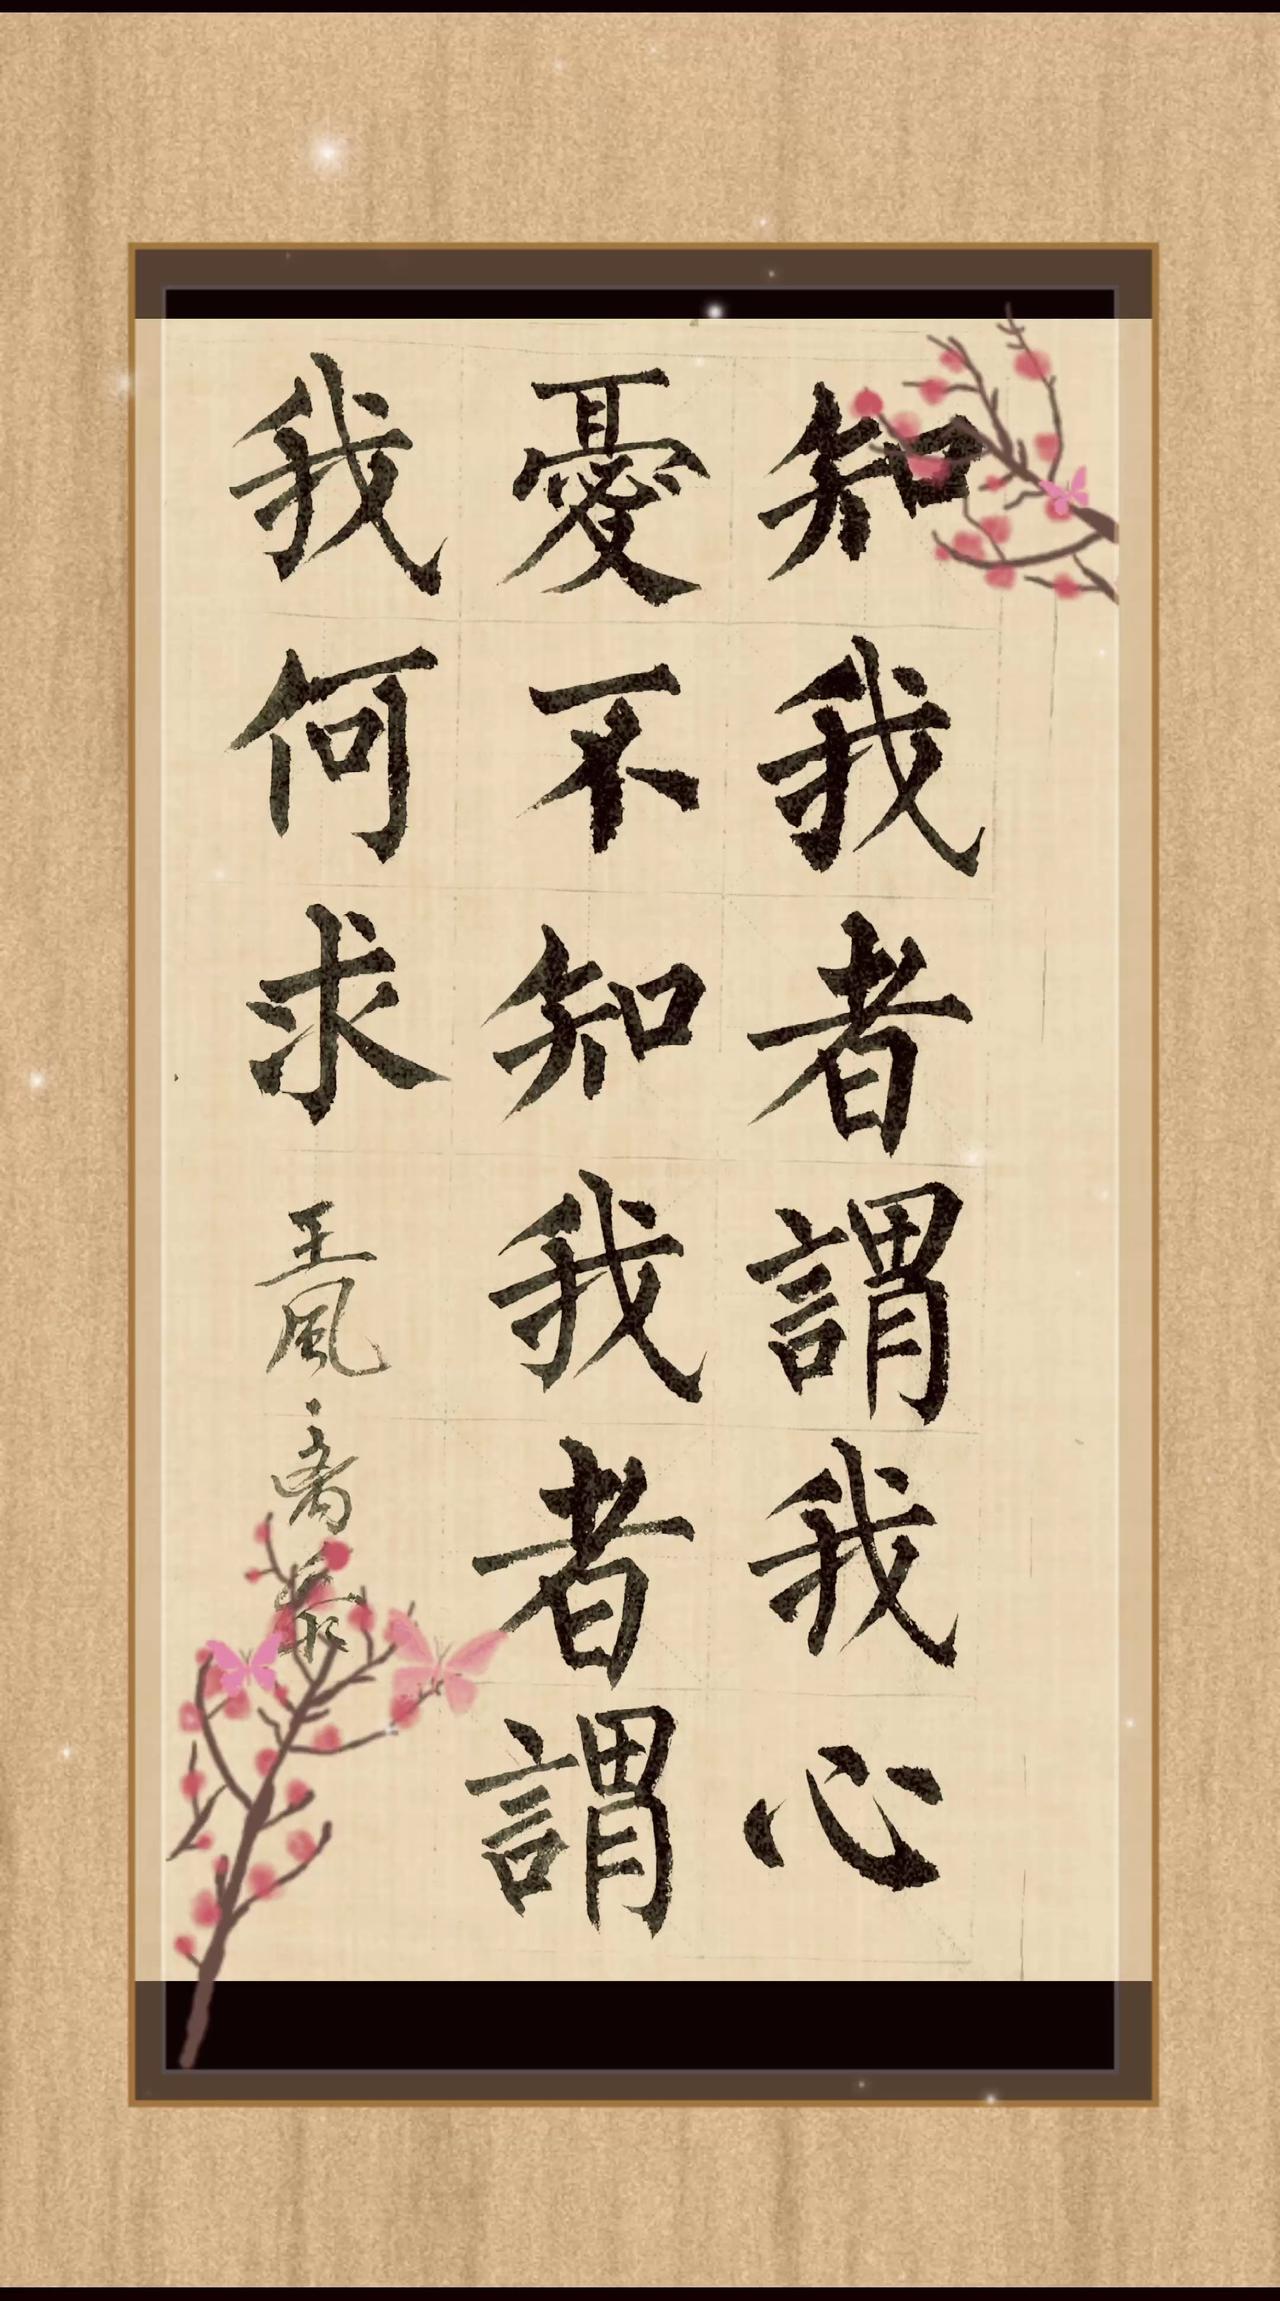 知我者謂我心
憂不知我者謂
我何求
王風·黍離